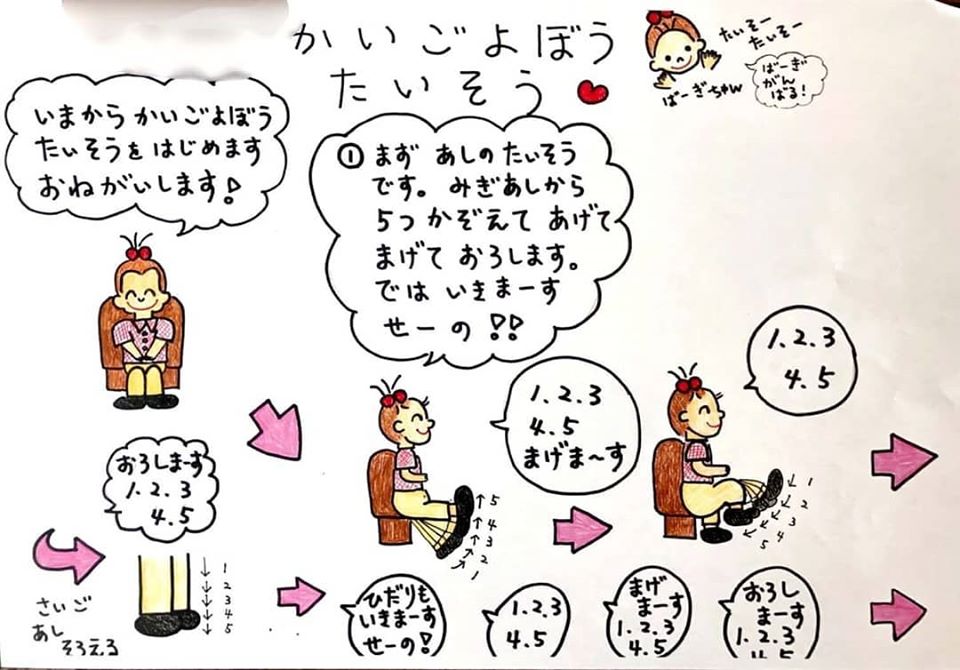 かいごよぼう
たいそう
たいそー
たいそー
ばーぎちゃん
ばーぎ
がん
ばる!
いまから かいごよぼう
たいそうを はじめます
おねがいします!
① まず あしの たいそう
です。 みぎあしから
5つ かぞえて あげて
まげて おろします。
では いきまーす
せーの!!
1.2.3
4.5
まげま〜す
1.2.3
4.5
おろしまーす
1.2.3
4.5
↑5
↑4
↑3
↗2
↗1
↓1
↙2
↙3
↙4
↙5
さいご
あし
そろえる
1
2
3
4
5
ひだりも
いきまーす
せーの!
1.2.3
4.5
まげ
まーす
1.2.3
4.5
おろし
まーす
1.2.3